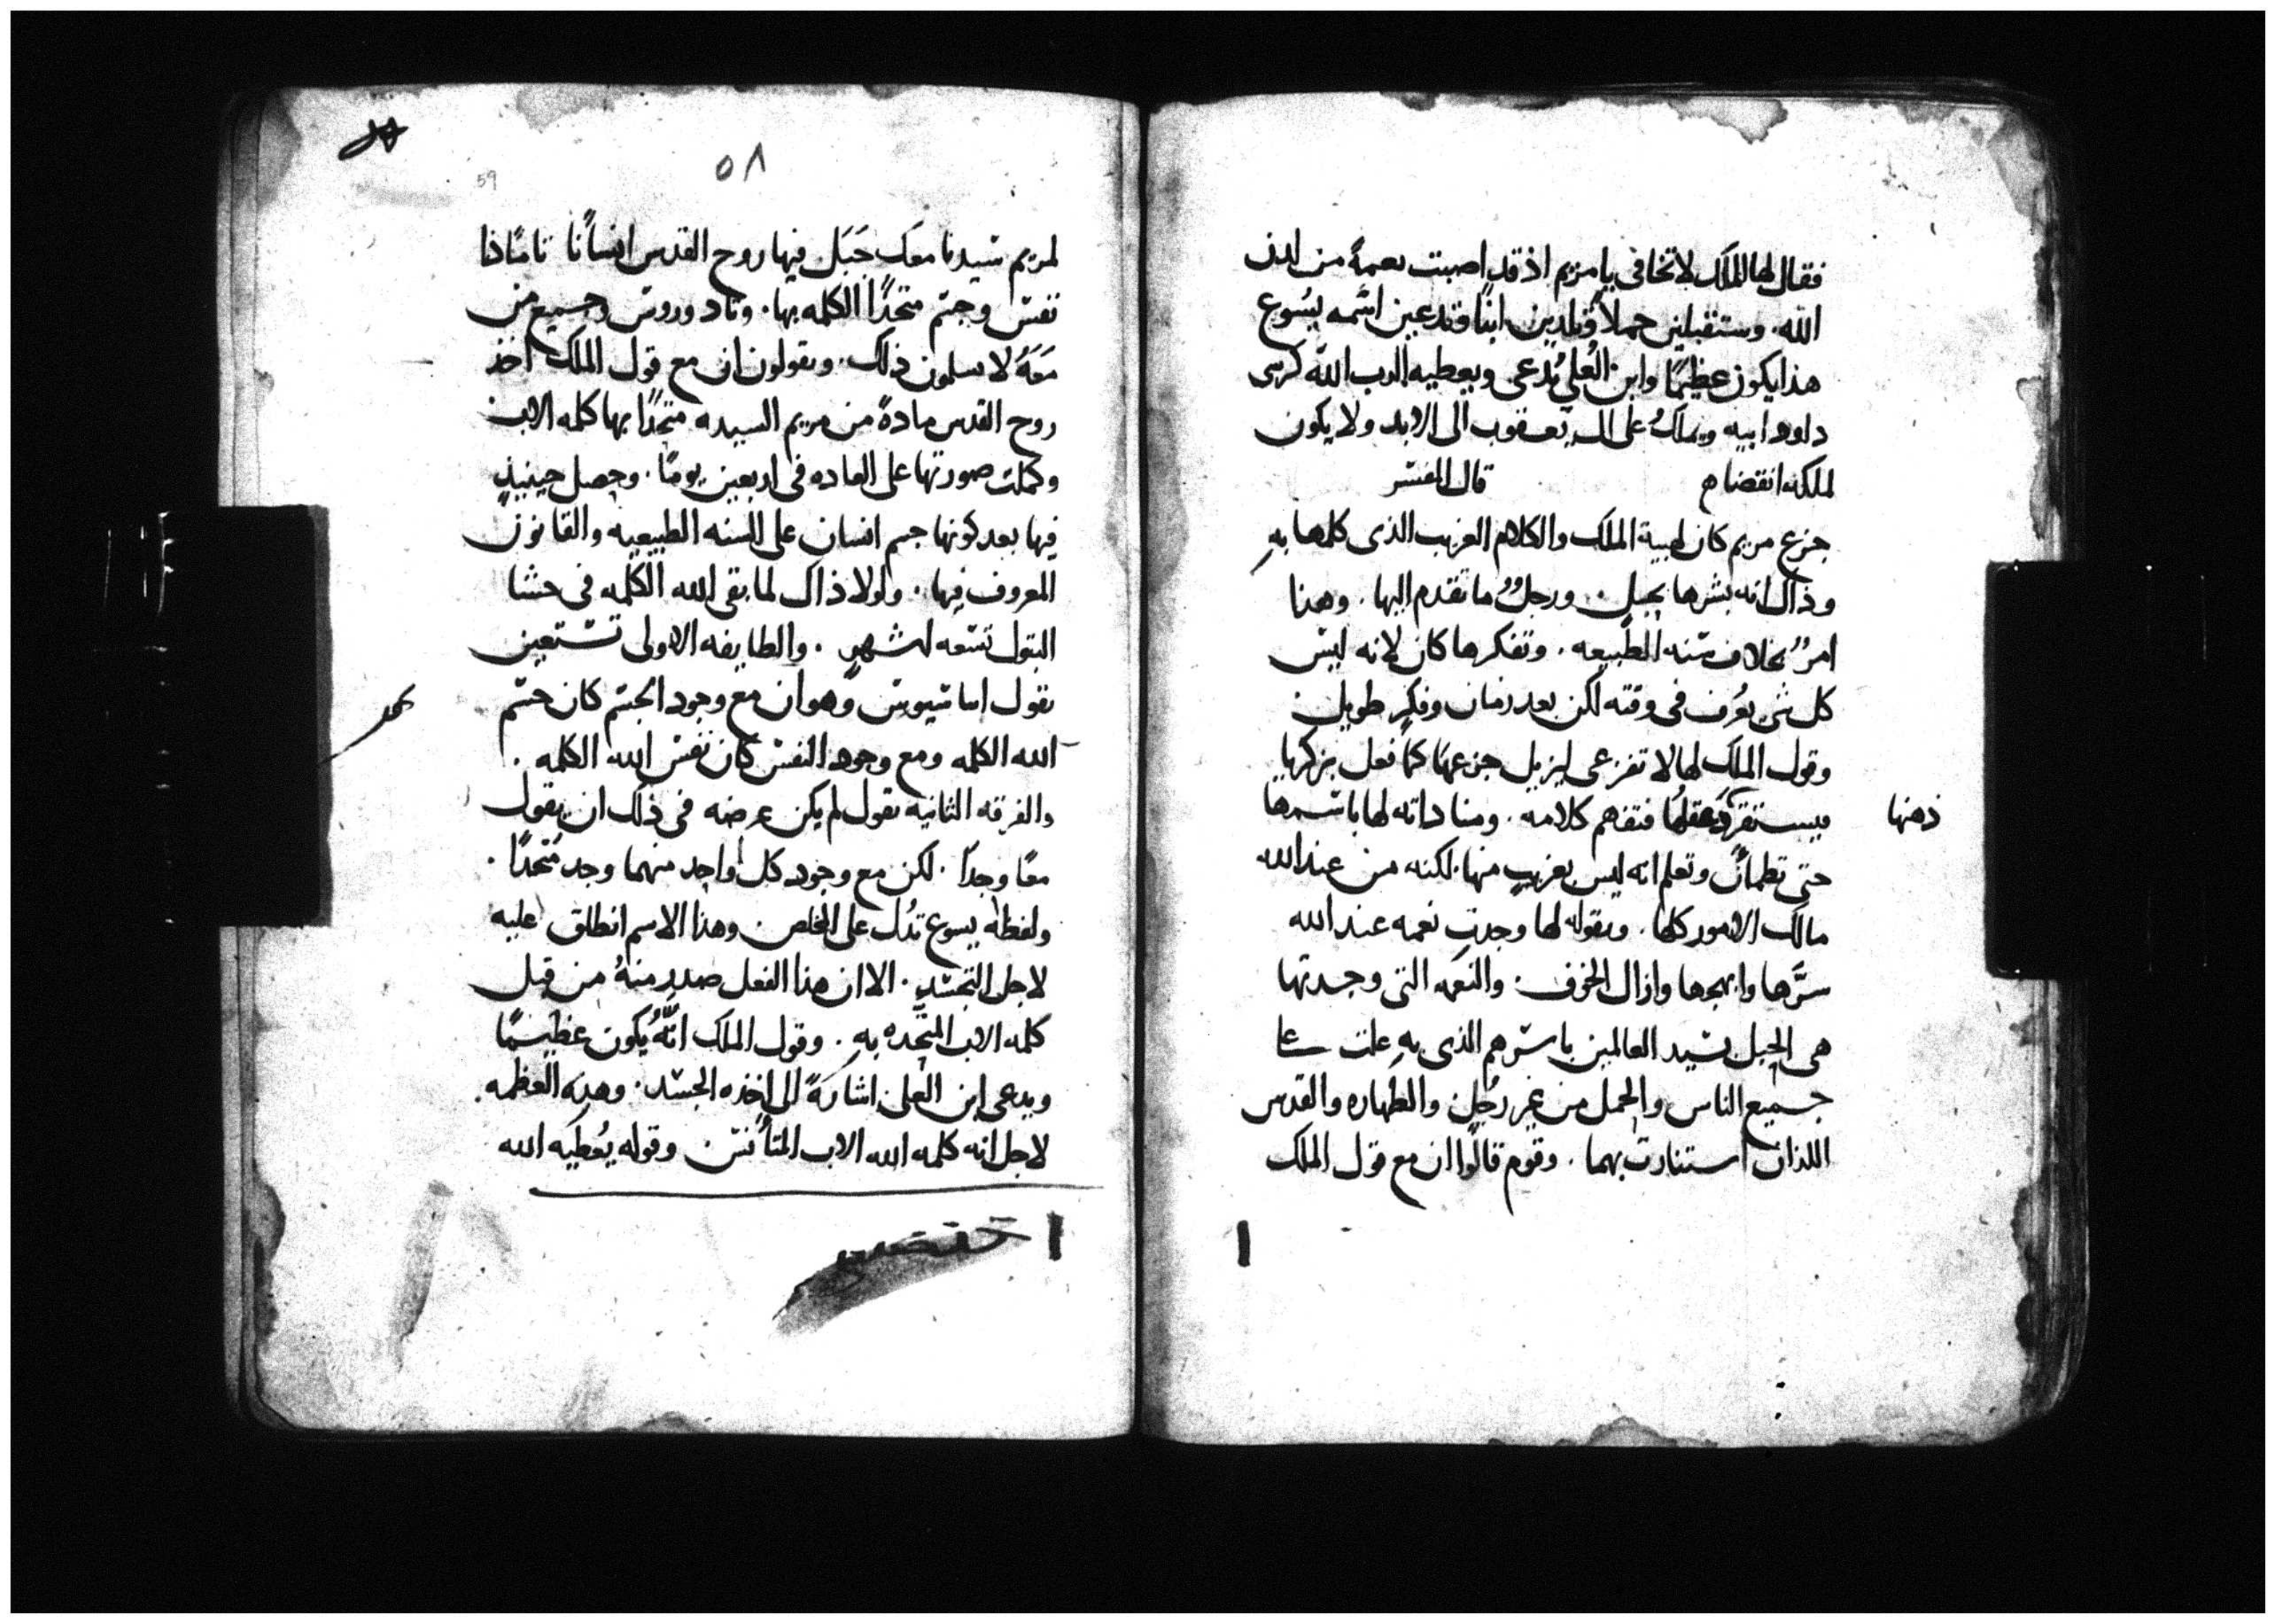 فقال لها الملاك لا تخافى يا مريم اذ قد اصبت نعمةً من لدن
الله. وستقبلين حملاً وتلدين ابنًا وتدعين اسمه يسوع
هذا يكون عظيمًا وابن العُلي يُدعى ويعطيه الرب الله كرسى
داود ابيه ويملكُ على ال يعقوب الى الابد ولا يكون
لملكه انقضا م قال المفسر
جزع مريم كان لهيبة الملاك والكلام الغريب الذى كلمها بهِ
وذاك انه بشرها بحبل. ورجلٌ ما تقدم اليها. وهذا
امرٌ بخلاف سُنه الطبيعه. وتفكرها كان لانه ليس
كل شى يعُرف فى وقته لكن بعد زمان وفكرٍ طويل
وقول الملاك لها لا تفزعى ليزيل جزعها كما فعل بزكريا
فيستقر عقلها فتفهم كلامه. ومناداته لها باسمها
ذهنها
حتى تطمأن وتعلم انه ليس بغريبٍ منها. لكنه من عند الله
مالك الامور كلها. وبقوله لها وجدتِ نعمه عند الله
سرَّها وابهجها وازال الخوف. والنعمه التى وجدتها
هى الحبل بسيد العالمين باسرهم الذى بهِ علت على
جميع الناس والحمل من غير رجُلٍ والطهاره والقدس
اللذان استنارت بهما. وقوم قالوا ان مع قول الملاك
٥٨
59
لمريم سيدنا معك حَبَل فيها روح القدس انسانًا تامًا ذا
نفس وجسم متحدًا الكلمه بها. وتادوروس وجميع من
مَعَهُ لا يسلمون ذلك. ويقولون ان مع قول الملاك اخذ
روح القدس مادةً من مريم السيده متحدًا بها كلمه الاب
وكملت صورتها على العاده فى اربعين يومًا. وحصل حينيذٍ
فيها بعد كونها جسم انسان على السنه الطبيعيه والقانون
المعروف فيها. ولولا ذاك لما بقى الله الكلمه فى حشا
البتول تسعه اشهرٍ. والطايفه الاولى تستعين
بقول اتناسيوس وهو ان مع وجود الجسم كان جسم
الله الكلمه ومع وجود النفس كان نفس الله الكلمه.
والفرقه الثانيه تقول لم يكن غرضه فى ذلك ان يقول
معًا وجدا. لكن مع وجود كل واحد منهما وجد مُتحدًا.
ولفظه يسوع تدُل على المخلص وهذا الاسم انطلق عليه
لاجل التجسد. الا ان هذا الفعل صدر منهُ من قبل
كلمه الاب المتّحده بهِ. وقول الملاك انّهُ يكون عظيمًا
ويدعى ابن العلى اشارةً الى اخذه الجسد. وهذه العظمه
لاجل انه كلمه الله الاب المتأنس وقوله يُعطيه الله